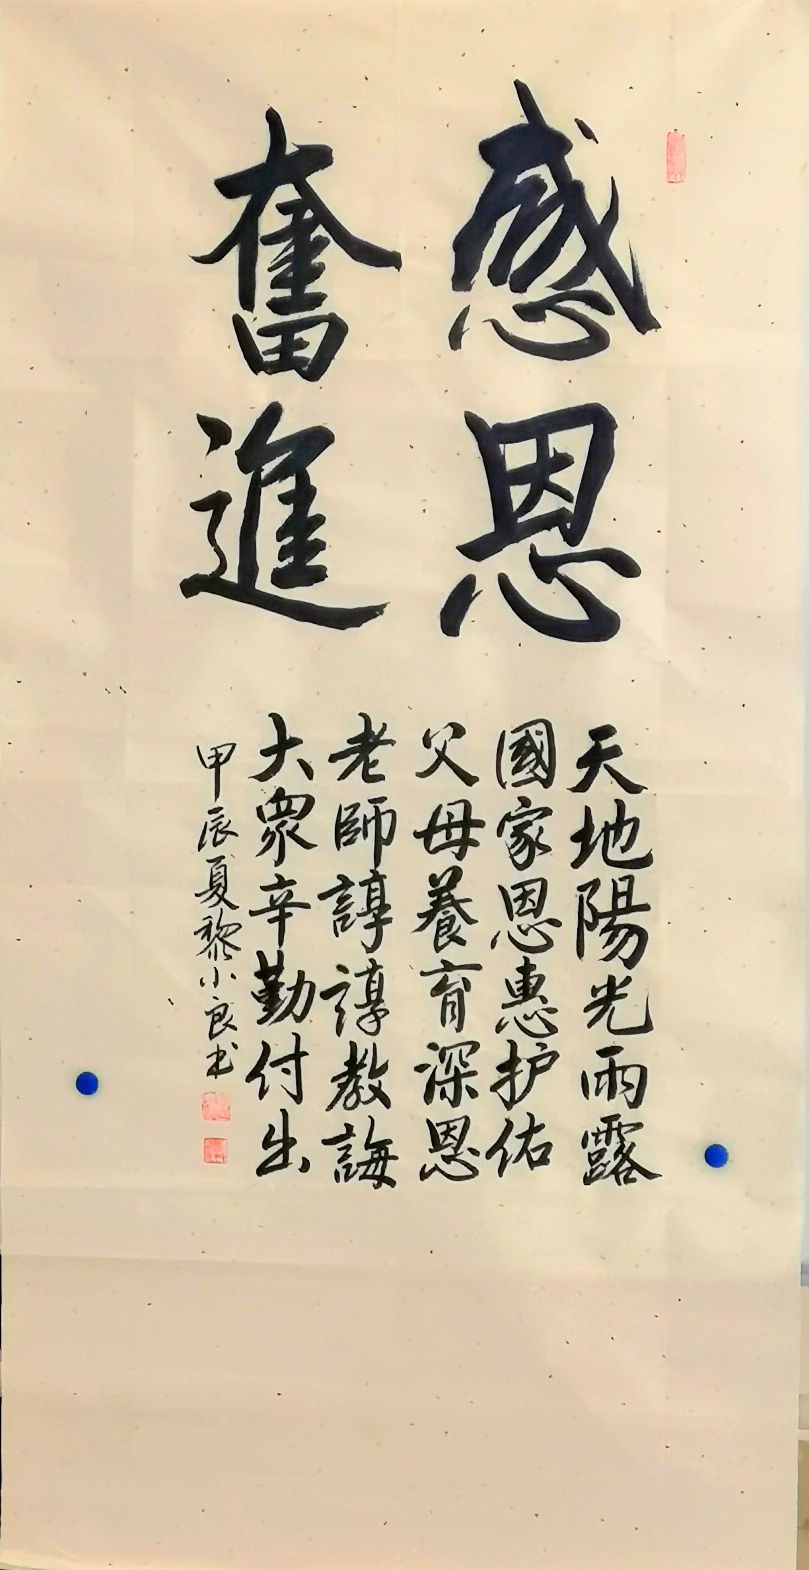 感恩
奮進
天地陽光雨露
國家恩惠护佑
父母養育深恩
老師諄諄教誨
大眾辛勤付出
甲辰夏黎小良书